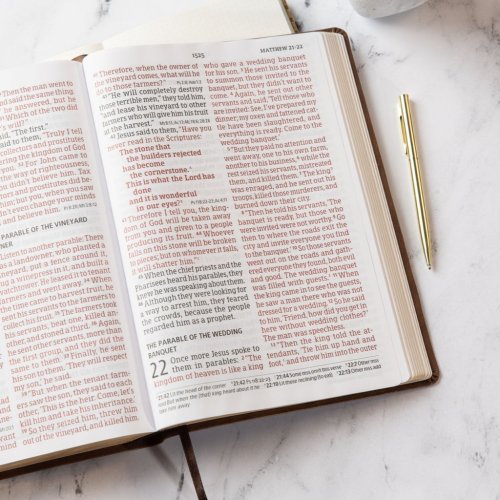 1525
MATTHEW 21–22
Then the man went
and said the same thing.
he answered, but he
Which of the two did
's will?"
said, "The first."
"Truly I tell
For John came to
way of righteousness,
believe him. Tax
and prostitutes did be-
but you, when you saw
change your minds
and believe him.
PARABLE OF THE VINEYARD
Listen to another parable: There
was a landowner, who planted
a vineyard, put a fence around
it, dug a winepress in it, and built a
watchtower. He leased it to tenant
farmers and went away. When
the time came to harvest fruit, he
collect his fruit. The farmers took
his servants, beat one, killed an-
other, and stoned a third. Again,
he sent other servants, more than
the first group, and they did the
same to them. Finally, he sent
his son to them. 'They will respect
my son,' he said.
"But when the tenant farm-
ers saw the son, they said to each
other, 'This is the heir. Come, let's
kill him and take his inheritance.'
So they seized him, threw him
out of the vineyard, and killed him.
40 Therefore, when the owner of
the vineyard comes, what will he
do to those farmers?"
41 "He will completely destroy
those terrible men," they told him,
"and lease his vineyard to other
farmers who will give him his fruit
at the harvest."
42 Jesus said to them, "Have you
never read in the Scriptures:
The stone that
the builders rejected
has become
the cornerstone.
This is what the Lord
has done
and it is wonderful
in our eyes?
43 Therefore I tell you, the king-
dom of God will be taken away
from you and given to a people
producing its fruit. 44 Whoever
falls on this stone will be broken
to pieces; but on whomever it falls,
it will shatter him."
45 When the chief priests and the
Pharisees heard his parables, they
knew he was speaking about them.
46 Although they were looking for
a way to arrest him, they feared
the crowds, because the people
regarded him as a prophet.
THE PARABLE OF THE WEDDING
BANQUET
22 Once more Jesus spoke to
them in parables: 2 "The
kingdom of heaven is like a king
who gave a wedding banquet
for his son. 3 He sent his servants
to summon those invited to the
banquet, but they didn't want to
come. 4 Again, he sent out other
servants and said, 'Tell those who
are invited: See, I've prepared my
dinner; my oxen and fattened cat-
tle have been slaughtered, and
everything is ready. Come to the
wedding banquet.'
5 "But they paid no attention and
went away, one to his own farm,
another to his business, 6 while the
rest seized his servants, mistreated
them, and killed them. 7 The king
was enraged, and he sent out his
troops, killed those murderers, and
burned down their city.
8 "Then he told his servants, 'The
banquet is ready, but those who
were invited were not worthy. 9 Go
then to where the roads exit the
city and invite everyone you find
to the banquet.' 10 So those servants
went out on the roads and gath-
ered everyone they found, both evil
and good. The wedding banquet
was filled with guests. 11 When
the king came in to see the guests,
he saw a man there who was not
dressed for a wedding. 12 So he said
to him, 'Friend, how did you get in
here without wedding clothes?'
The man was speechless.
13 "Then the king told the at-
tendants, 'Tie him up hand and
foot, and throw him into the outer